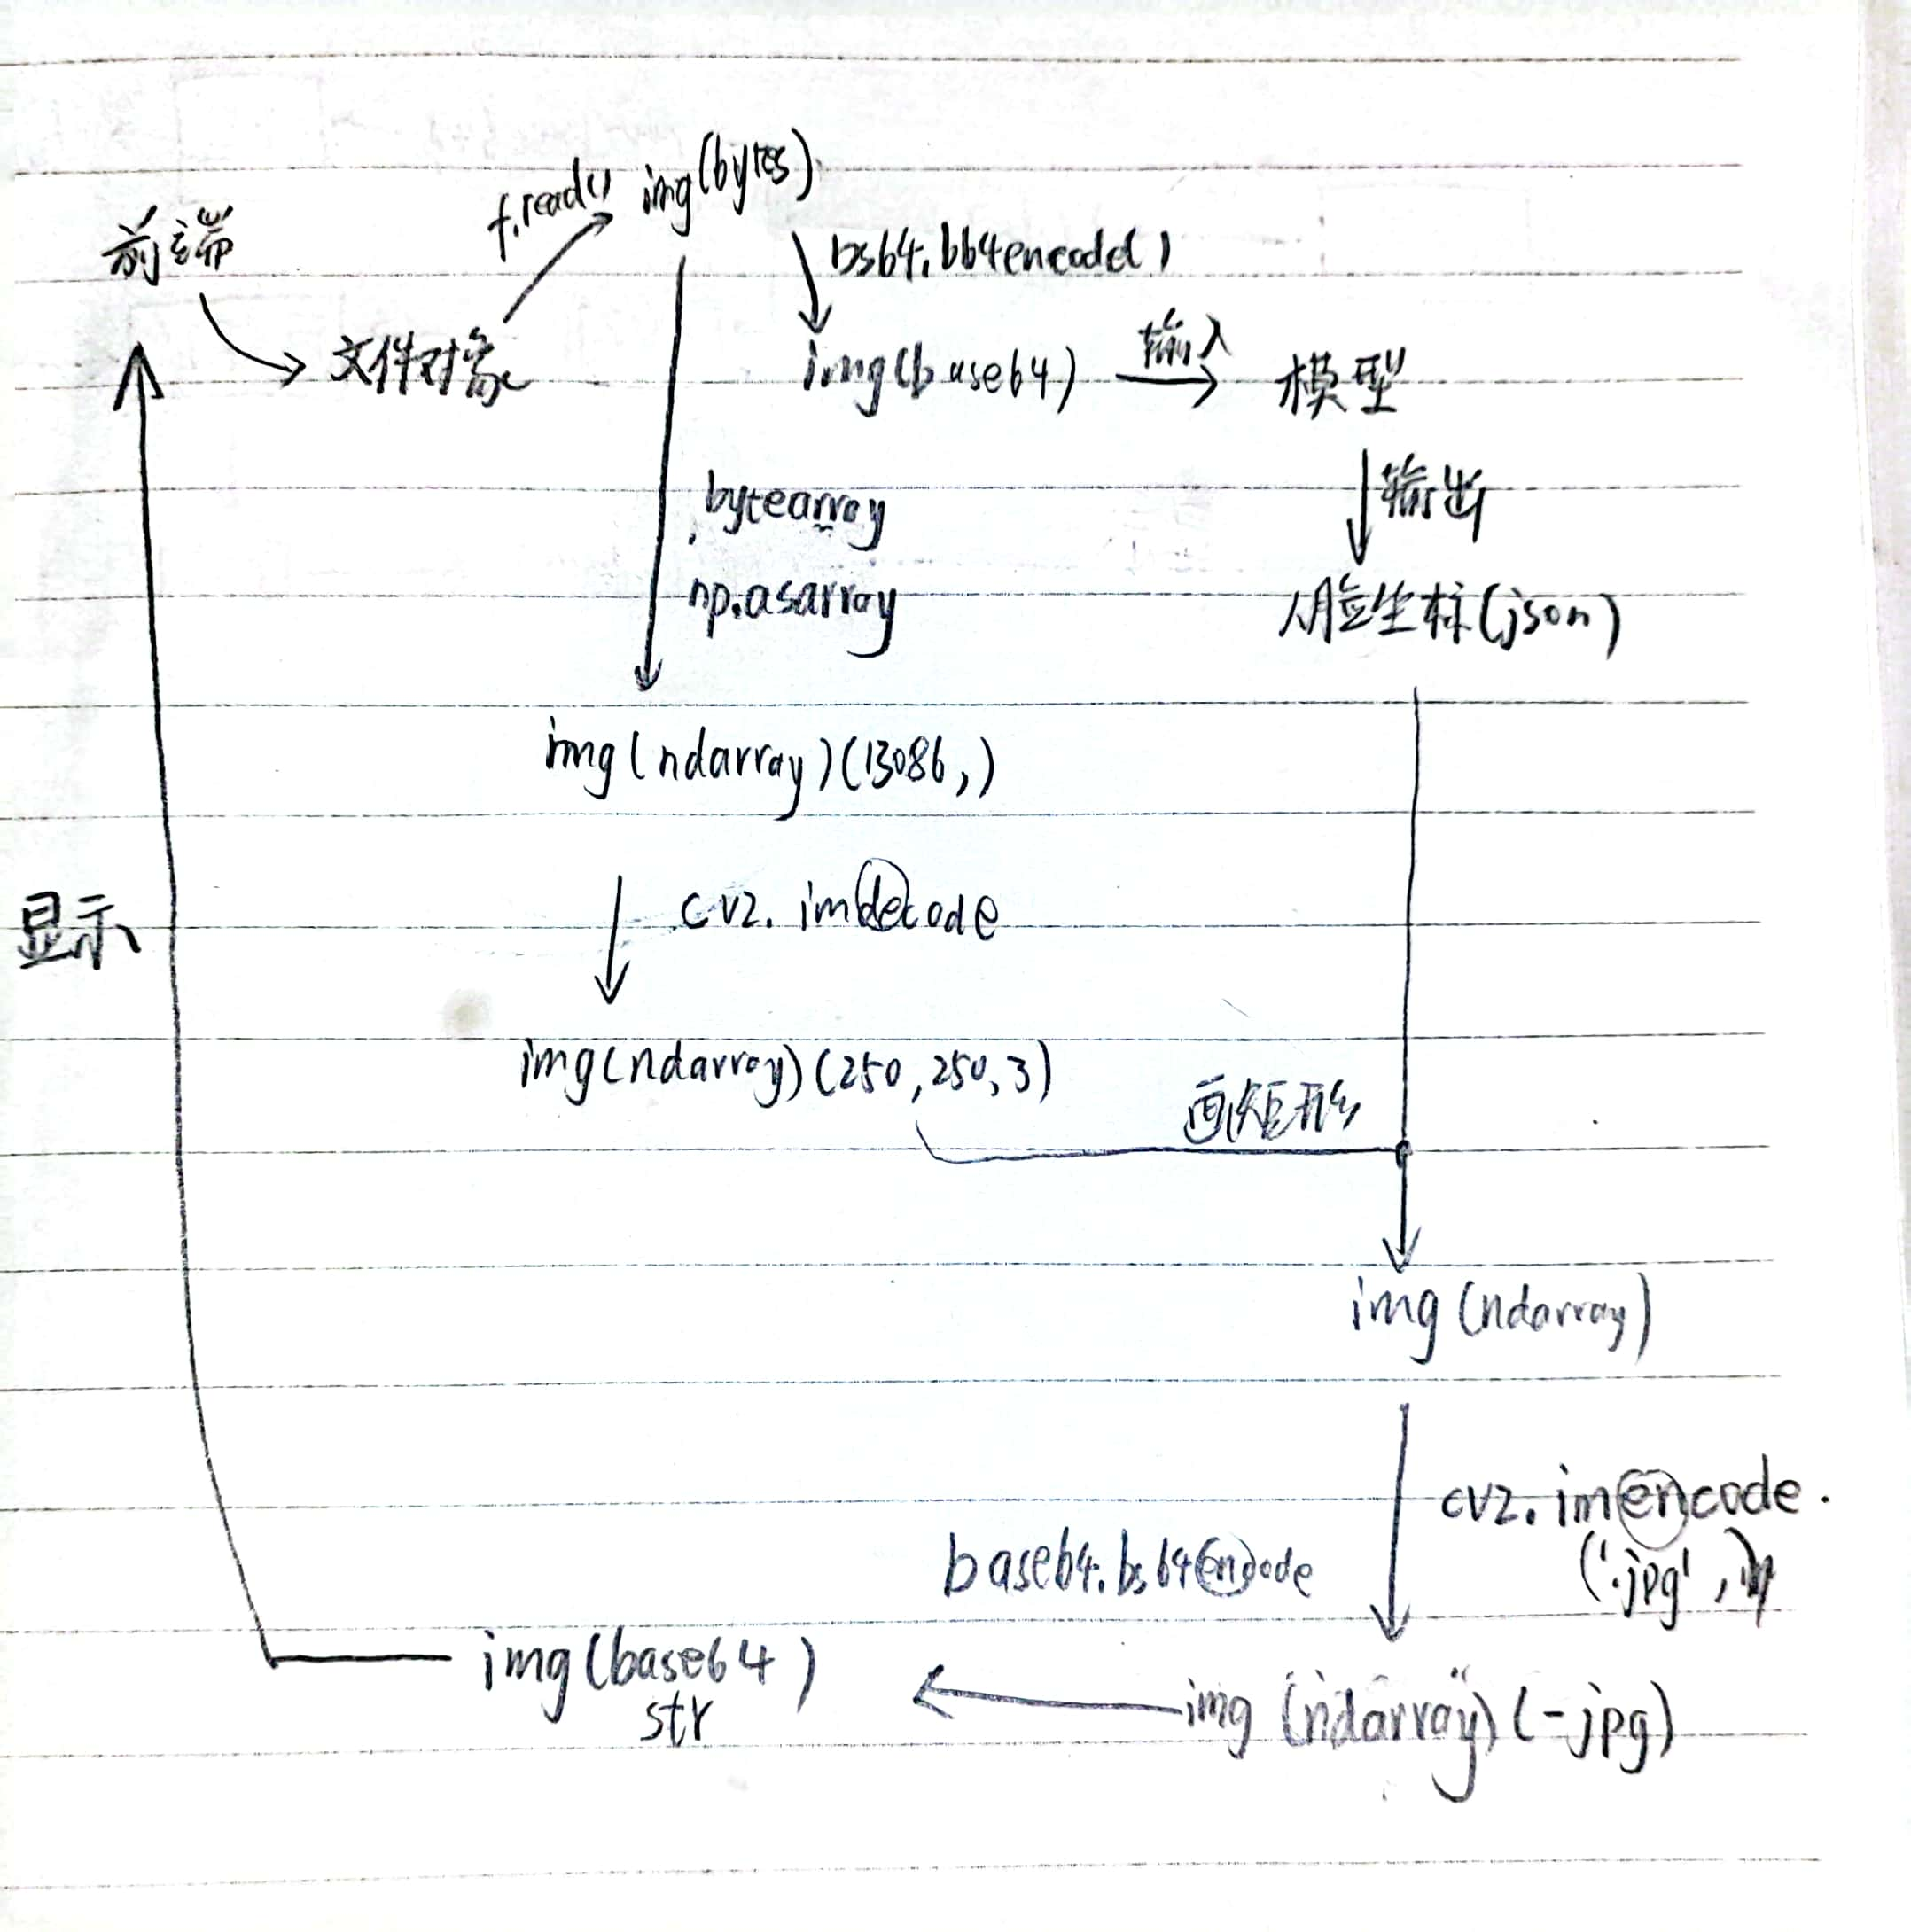 f.read() img(bytes)
前端
bs64.b64encode()
文件对象
img(base64)
输入
模型
bytearray
np.asarray
输出
人脸坐标(json)
img(ndarray)(13086,)
cv2.imdecode
显示
img(ndarray)(250,250,3)
画矩形
img(ndarray)
cv2.imencode.
('.jpg',
base64.bs64encode
img(base64)
str
img(ndarray)(-jpg)